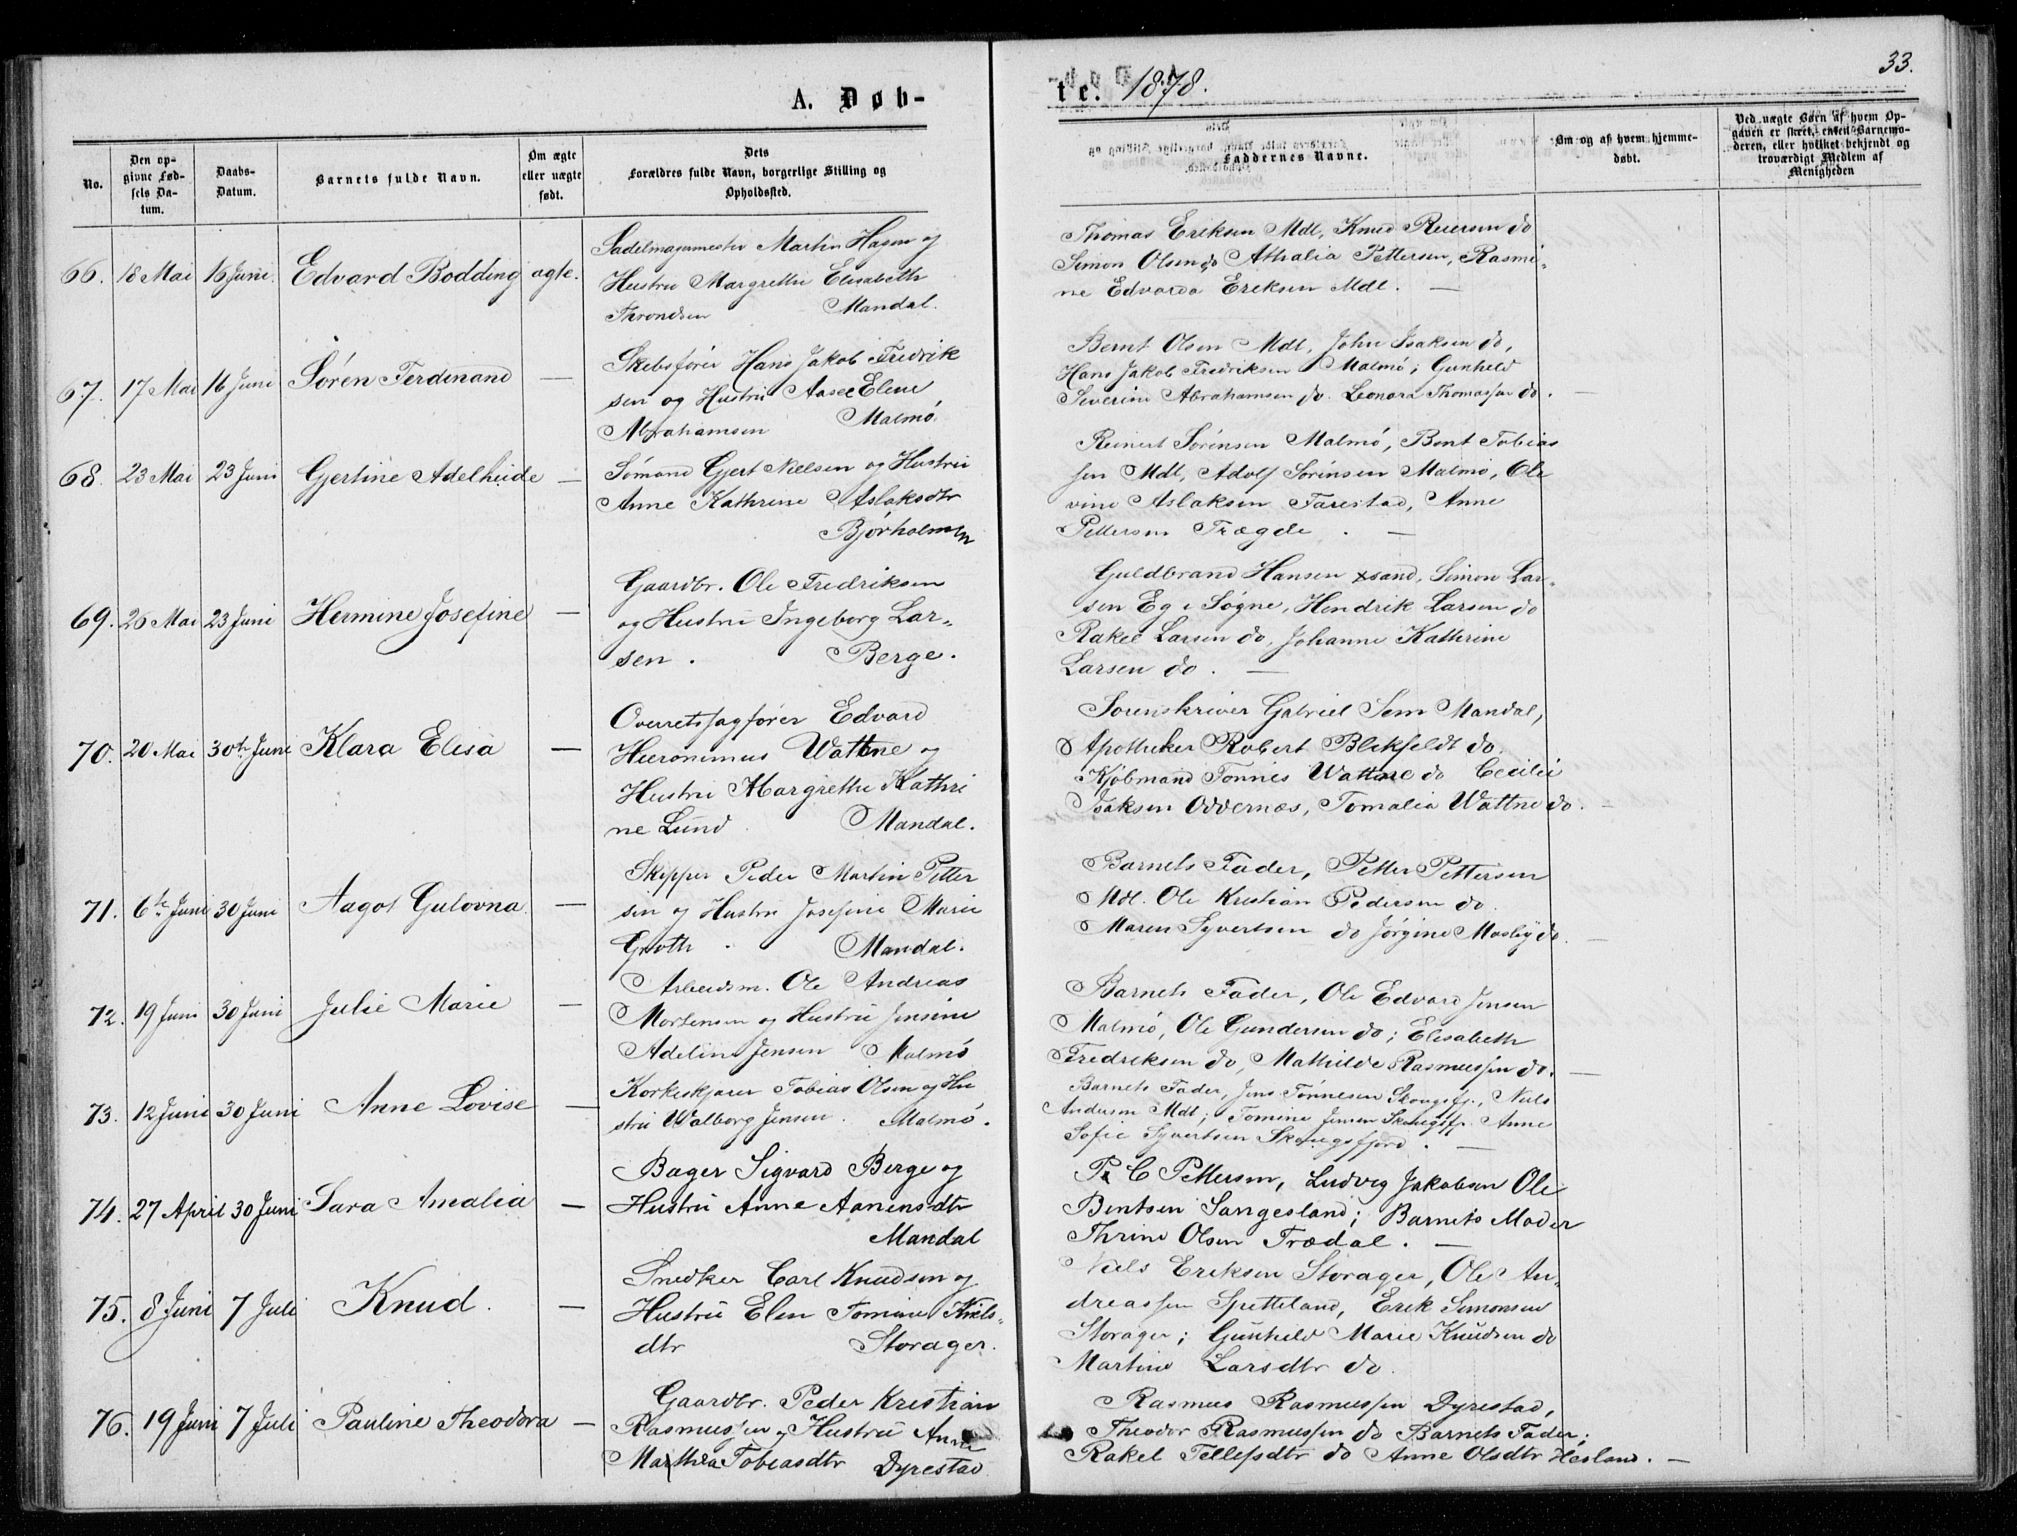 33.
A. Døb-
te. 1878.
No.
Den op-
givne Fød-
sels Da-
tum.
Daabs-
Datum.
Barnets fulde Navn.
Om ægte
eller uægte
født.
Dets
Forældres fulde Navn, borgerlige Stilling og
Opholdssted.
Faddernes Navne.
Om og af hvem hjemme-
døbt.
Ved uægte Børn af hvem Op-
gaven er skeet, enten Barnemo-
deren, eller hvilket bekjendt og
troværdigt Medlem af
Menigheden
66. 18 Mai 16 Juni. Edvard Bodding ægte.
Sadelmagermester Martin Hagen og
Hustru Margrethe Elisabeth
Throndsen Mandal.
Thomas Eriksen Mdl, Knud Reiersen do
Simon Olsen do Athalia Pettersen, Rasmi-
ne Edvarda Eriksen Mdl. —
67. 17 Mai 16 Juni Sören Ferdinand —
Skibsfører Hans Jakob Fredrik
sen og Hustru Aase Elene
Abrahamsen Malmö.
Bernt Olsen Mdl, John Isaksen do,
Hans Jakob Fredriksen Malmö; Gunhild
Severine Abrahamsen do. Leonora Thomassen do. —
68. 23 Mai 23 Juni Gjertine Adelheide —
Sömand Gjert Nielsen og Hustru
Anne Kathrine Aslaksdtr
Bjørholmen
Reinert Sörensen Malmö, Bent Tobias
sen Mdl, Adolf Sörensen Malmö, Ole
vine Aslaksen Farestad, Anne
Pettersen Trægde. —
69. 26 Mai 23 Juni Hermine Josefine —
Gaardbr. Ole Fredriksen
og Hustru Ingeborg Lar-
sen. Berge.
Guldbrand Hansen xsand, Simon Lar-
sen Eg i Søgne, Hendrik Larsen do
Rakel Larsen do, Johanne Kathrine
Larsen do. —
70. 20 Mai 30te Juni Klara Elisa —
Overretssagfører Edvard
Hieronimus Wattne og
Hustru Margrethe Kathri
ne Lund Mandal.
Sorenskriver Gabriel Sem Mandal,
Apotheker Robert Blikfeldt do.
Kjøbmand Tönnes Wattne do Cecilie
Isaksen Oddernæs, Tomalia Wattne do. —
71. 6te Juni 30 Juni Aagot Gulovna. —
Skipper Peder Martin Petter
sen og Hustru Josefine Marie
Groth. Mandal.
Barnets Fader, Petter Pettersen
Mdl. Ole Kristian Pedersen do.
Maren Syvertsen do Jørgine Mosby do. —
72. 19 Juni 30 Juni Julie Marie —
Arbeidsm. Ole Andreas
Mortensen og Hustru Jensine
Adeline Jensen Malmö
Barnets Fader, Ole Edvard Jensen
Malmö, Ole Gundersen do; Elisabeth
Fredriksen do, Mathilde Rasmussen do. —
73. 12 Juni 30 Juni Anne Lovise —
Korkeskjærer Tobias Olsen og Hu
stru Walborg Jensen. Malmö.
Barnets Fader, Jens Tönnesen Skougsfj., Niels
Andersen Mdl; Tomine Jensen Skougsfj. Anne
Sofie Syvertsen Skougsfjord. —
74. 27 April 30 Juni Sara Amalia —
Bager Sigvard Berge og
Hustru Anne Aanensdtr
Mandal
P. C Pettersen, Ludvig Jakobsen Ole
Bentsen Sangesland; Barnets Moder
Thrine Olsen Trædal. —
75. 8 Juni 7 Juli Knud. —
Snedker Carl Knudsen og
Hustru Elen Tomine Niels-
dtr Storager.
Niels Eriksen Storager, Ole An-
dreassen Spetteland, Erik Simonsen
Storager; Gunhild Marie Knudsen do
Martine Larsdtr do.
76. 19 Juni 7 Juli Pauline Theodora —
Gaardbr. Peder Kristian
Rasmussen og Hustru Anne
Marthea Tobiasdtr Dyrestad
Rasmus Rasmussen Dyrestad,
Theodor Rasmussen do Barnets Fader;
Rakel Tellefsdtr do Anne Olsdtr Hesland. —